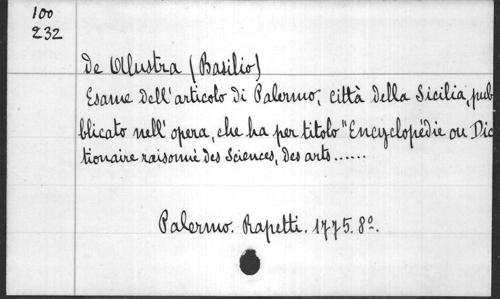 100
232
de Alustra (Basilio)
Esame dell'articolo di Palermo, città della Sicilia, pub
blicato nell'opera, che ha per titolo "Encyclopédie ou Dic
tionaire raisonné des Sciences, des arts......
Palermo. Rapetti. 1775. 8º.